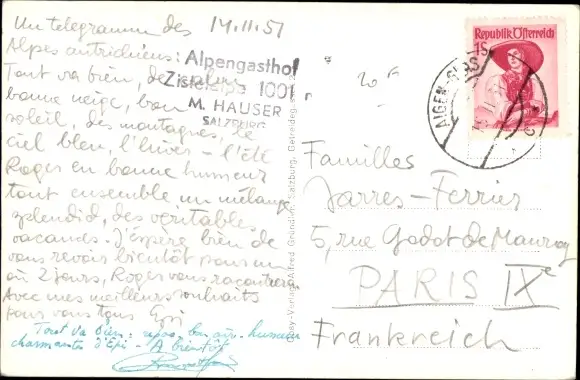 Un telegramm des 14.11.51
Alpes autrichiens:
Tout va bien, de
bonne neige, bon
soleil, des montagnes, le
ciel bleu, l'hiver - l'été
Roger en bonne humeur
tout ensemble un mélange
splendid, des véritables
vacances. J'espère bien de
vous revoir bientôt pour un
ou 2 jours, Roger vous racontera.
Avec mes meilleurs souhaits
pour vous tous Epi
Tout va bien: repos, bon air, humeur
charmante d'Epi - A bientôt
Alpengasthof
Zistelalpe 1001
M. HAUSER
SALZBURG
20 F
Republik Österreich
1S
AIGEN-GLAS
Verlag Alfred Gründler, Salzburg, Getreideg.
Familles
Jarres-Ferrier
5, rue Godot de Mauroy
PARIS IXe
Frankreich